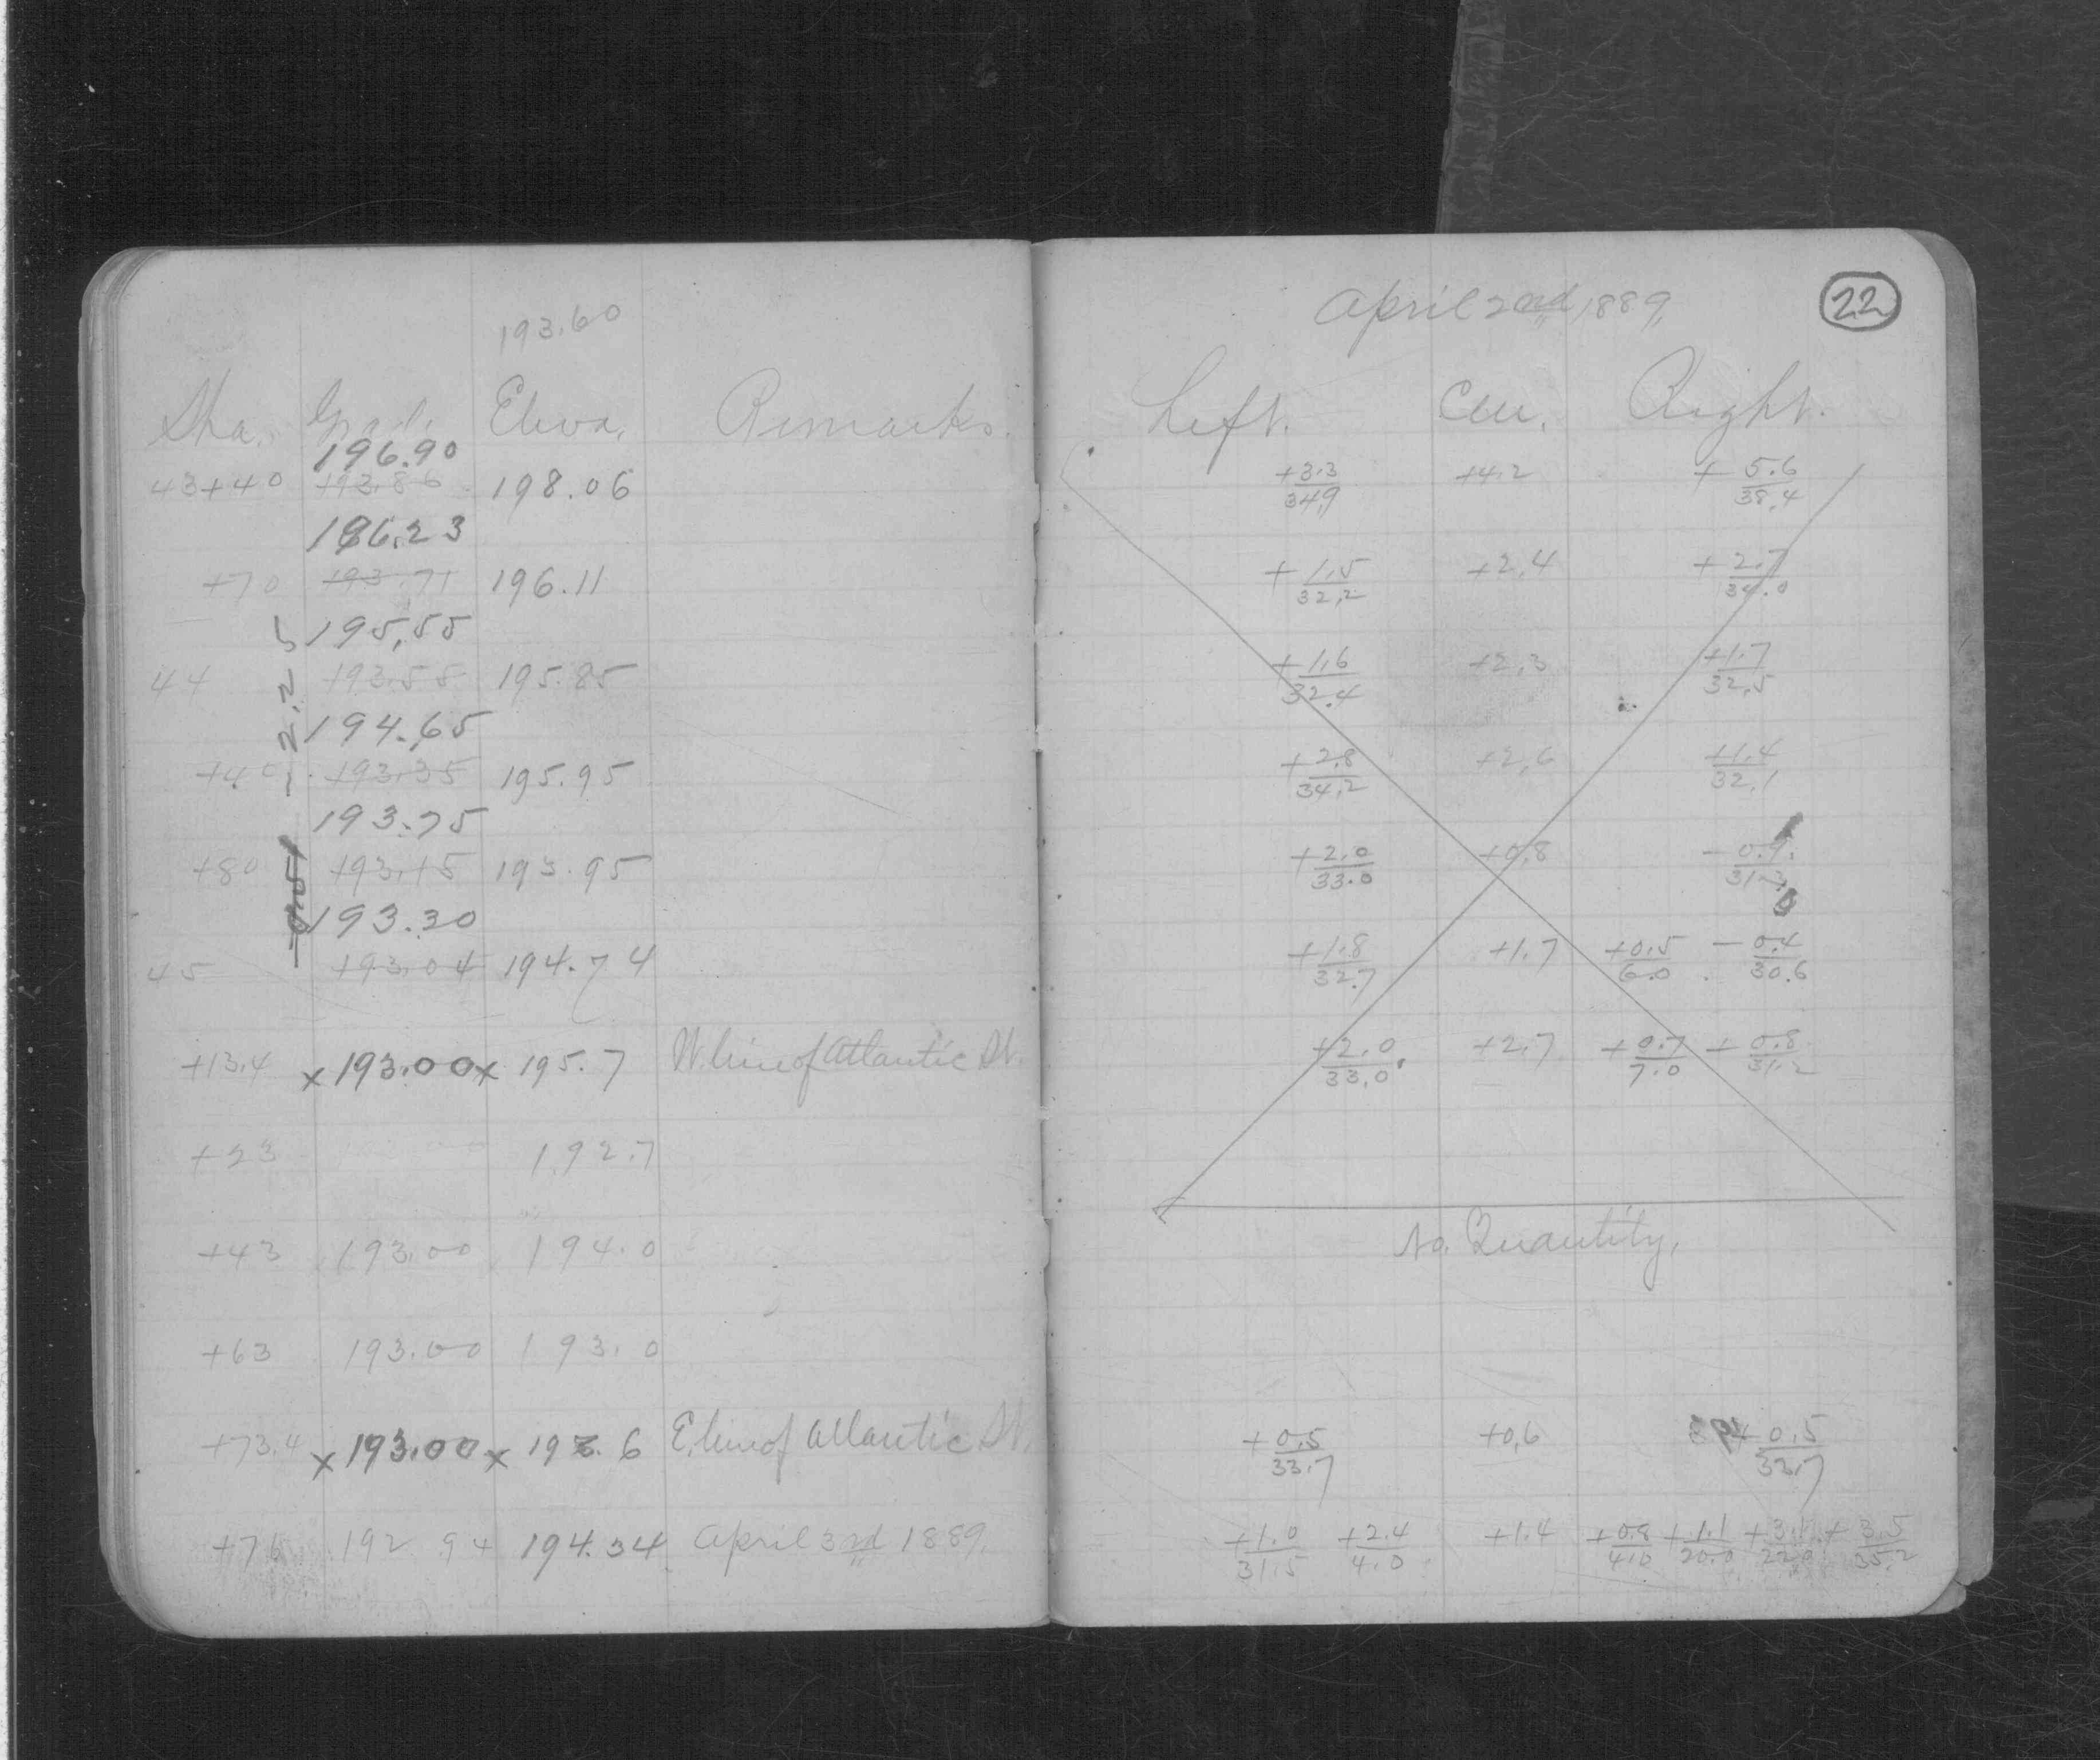 193.60
Sta. Grad. Eleva. Remarks.
196.90
43+40 193.86 198.06
196.23
+70 193.71 196.11
195.55
44 193.55 195.85
194.65
+40 193.35 195.95
193.75
+80 193.15 193.95
193.20
45 193.04 194.74
+13.4 x 193.00 x 195.7 W. line of Atlantic St.
+23 192.7
+43 193.00 194.0
+63 193.00 193.0
+73.4 x 193.00 x 193.6 E. line of Atlantic St.
+76 192.94 194.34 April 3rd 1889.
- 2.25
April 2nd, 1889,
22
Left. Cen. Right.
+3.3/34.9 +4.2 +5.6/38.4
+1.5/32.2 +2.4 +2.7/34.0
+1.6/32.4 +2.3 +1.7/32.5
+2.8/34.2 +2.6 +1.4/32.1
+2.0/33.0 +0.8
+1.8/32.7 +1.7 +0.5/6.0 -0.4/30.6
+2.0/33.0 +2.7 +0.7/7.0 +0.8/31.2
No. Quantity,
+0.5/33.7 +0.6 +0.5/33.7
+1.0/31.5 +2.4/4.0 +1.4 +0.8/4.0 +1.1/20.0 +3.1/22.0 +3.5/35.2